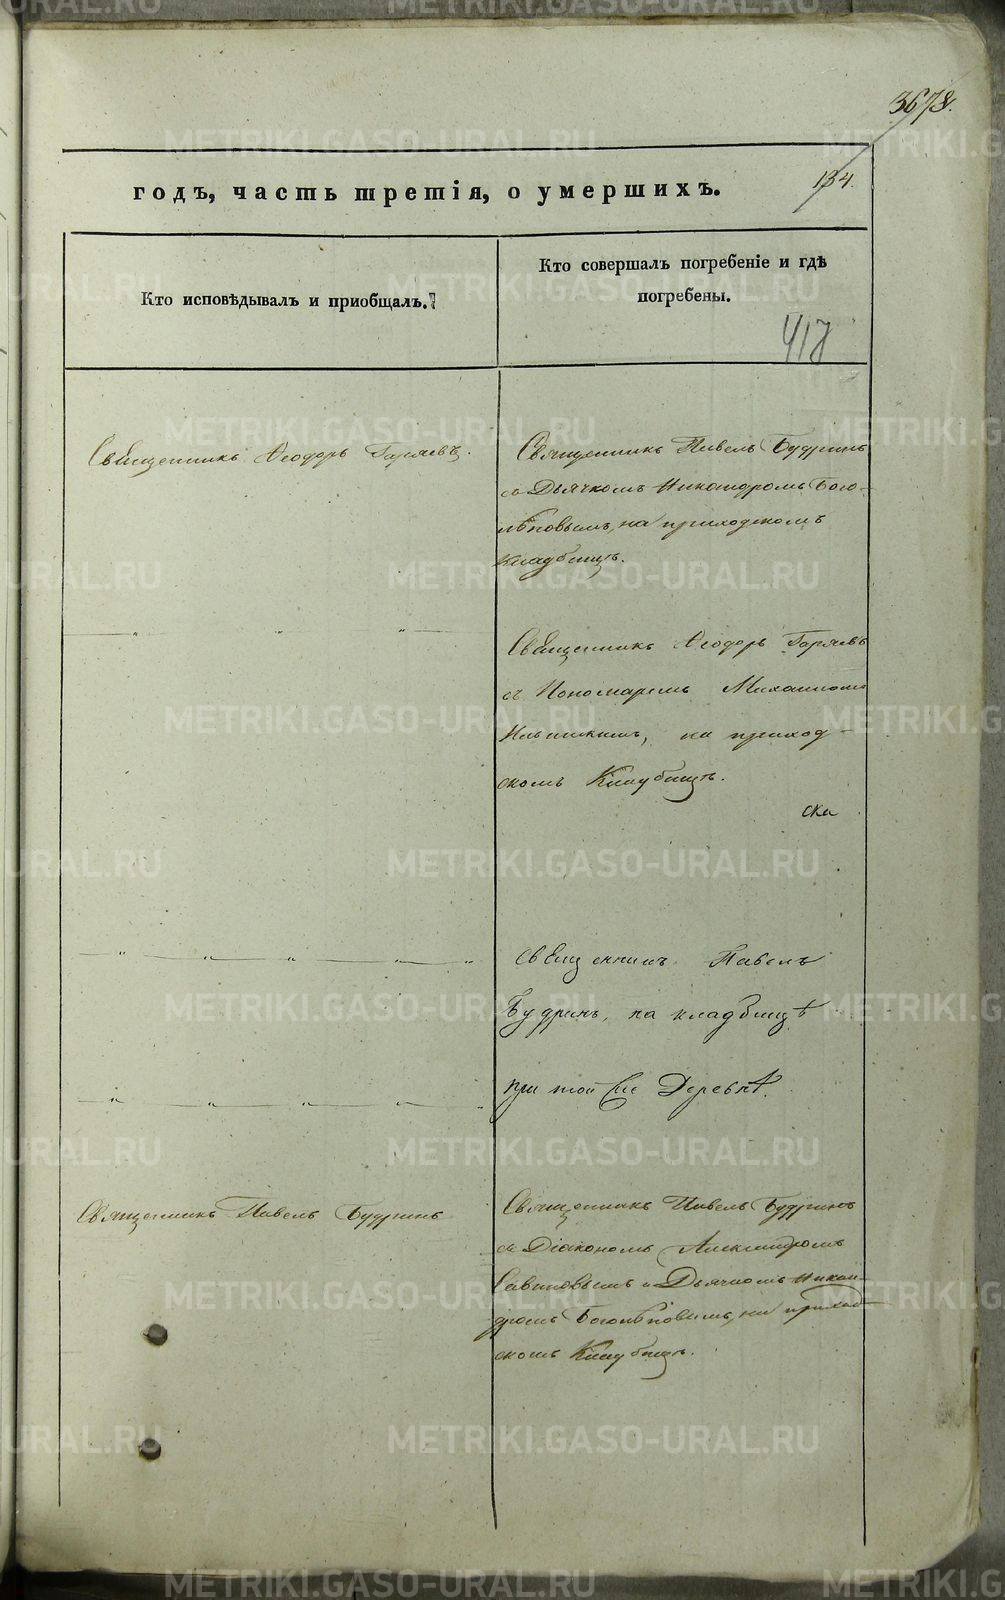 3678.
134.
годъ, часть третія, о умершихъ.
Кто исповѣдывалъ и приобщалъ.
Кто совершалъ погребеніе и гдѣ
погребены.
417
Священникъ Ѳеодоръ Горяевъ.
Священникъ Павелъ Будринъ
съ Дьячкомъ Никандромъ Бого-
лѣповымъ, на приходскомъ
Кладбищѣ.
Священникъ Ѳеодоръ Горяевъ
съ Пономаремъ Михаиломъ
Ильинскимъ, на приход-
скомъ Кладбищѣ.
ска
Священникъ Павелъ
Будринъ, на кладбищѣ
при той же Деревнѣ.
Священникъ Павелъ Будринъ
Священникъ Павелъ Будринъ
съ Діакономъ Александромъ
Савиновымъ и Дьячкомъ Никан-
дромъ Боголѣповымъ, на приход-
скомъ Кладбищѣ.
METRIKI.GASO-URAL.RU